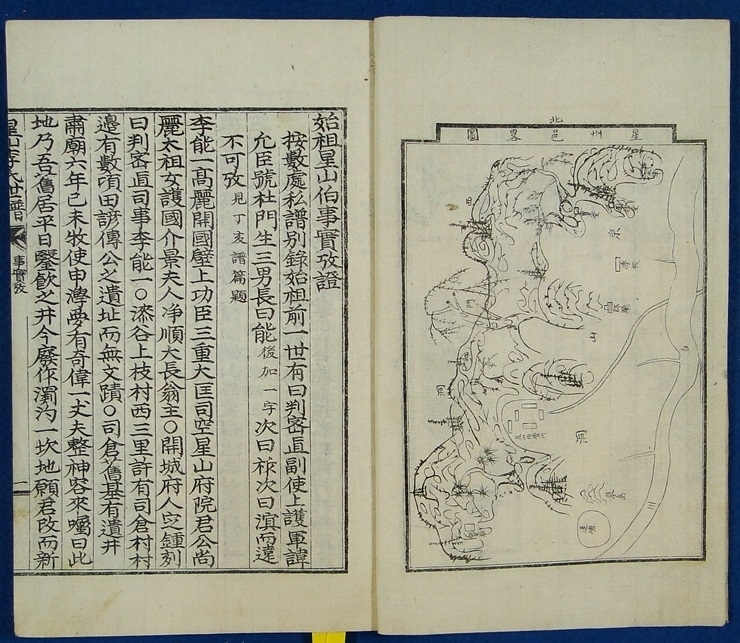 北
星州邑畧圖
西
京
學校
山
洞
洞
川
始祖星山伯事實攷證
按數處私譜別錄始祖前一世有曰判密直副使上護軍諱
允臣號杜門生三男長曰能後加一字次曰祿次曰濱而遠
不可攷見丁亥譜篇題
李能一高麗開國壁上功臣三重大匡司空星山府院君公尚
麗太祖女護國介景夫人净順大長翁主○開城府人安鍾刻
曰判密直司事李能一○漆谷上枝村西三里許有司倉村村
邊有數頃田諺傳公之遺址而無文蹟○司倉舊基有遺井
肅廟六年己未牧使申灣夢有奇偉一丈夫整神容來囑曰此
地乃吾舊居平日鑿飮之井今廢作濁汋一坎地願君改而新
星山李氏世譜
事實攷
一